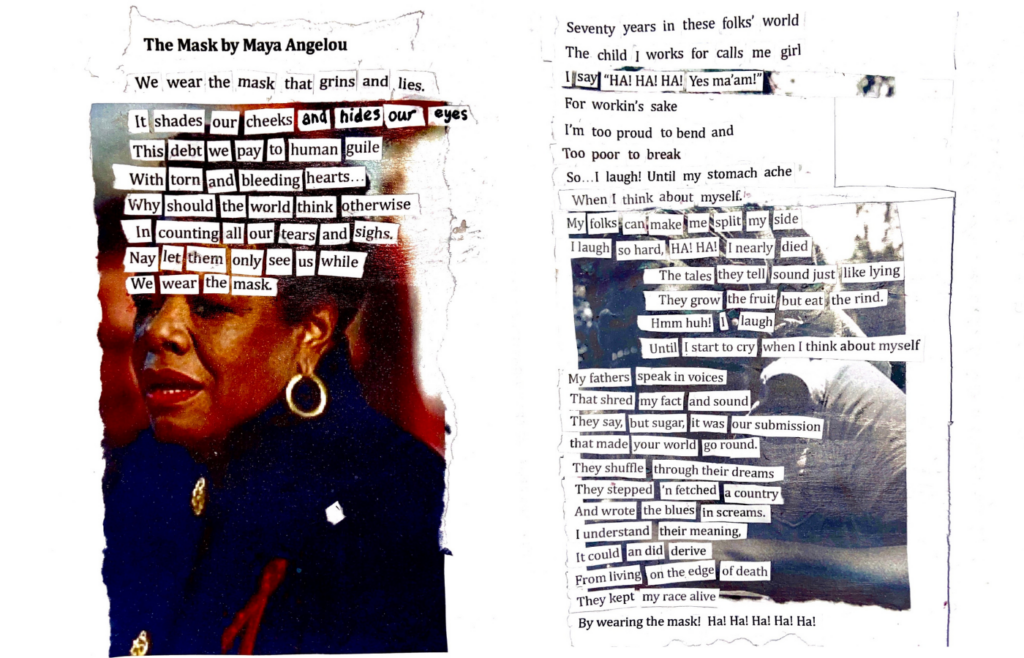 The Mask by Maya Angelou
We wear the mask that grins and lies.
It shades our cheeks and hides our eyes
This debt we pay to human guile
With torn and bleeding hearts...
Why should the world think otherwise
In counting all our tears and sighs.
Nay let them only see us while
We wear the mask.
Seventy years in these folks' world
The child I works for calls me girl
I say "HA! HA! HA! Yes ma'am!"
For workin's sake
I'm too proud to bend and
Too poor to break
So...I laugh! Until my stomach ache
When I think about myself.
My folks can make me split my side
I laugh so hard, HA! HA! I nearly died
The tales they tell sound just like lying
They grow the fruit but eat the rind.
Hmm huh! I laugh
Until I start to cry when I think about myself
My fathers speak in voices
That shred my fact and sound
They say, but sugar, it was our submission
that made your world go round.
They shuffle through their dreams
They stepped 'n fetched a country
And wrote the blues in screams.
I understand their meaning,
It could an did derive
From living on the edge of death
They kept my race alive
By wearing the mask! Ha! Ha! Ha! Ha! Ha!